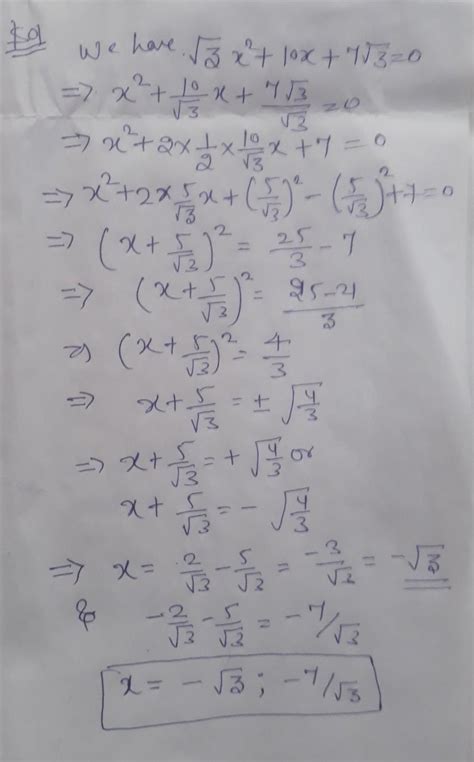 Sol
We have √3 x² + 10x + 7√3 = 0
⇒ x² + 10/√3 x + 7√3/√3 = 0
⇒ x² + 2 × 1/2 × 10/√3 x + 7 = 0
⇒ x² + 2 × 5/√3 x + (5/√3)² - (5/√3)² + 7 = 0
⇒ (x + 5/√3)² = 25/3 - 7
⇒ (x + 5/√3)² = 25-21/3
⇒ (x + 5/√3)² = 4/3
⇒ x + 5/√3 = ± √4/3
⇒ x + 5/√3 = + √4/3 or
x + 5/√3 = - √4/3
⇒ x = 2/√3 - 5/√3 = -3/√3 = -√3
& -2/√3 - 5/√3 = -7/√3
x = -√3 ; -7/√3